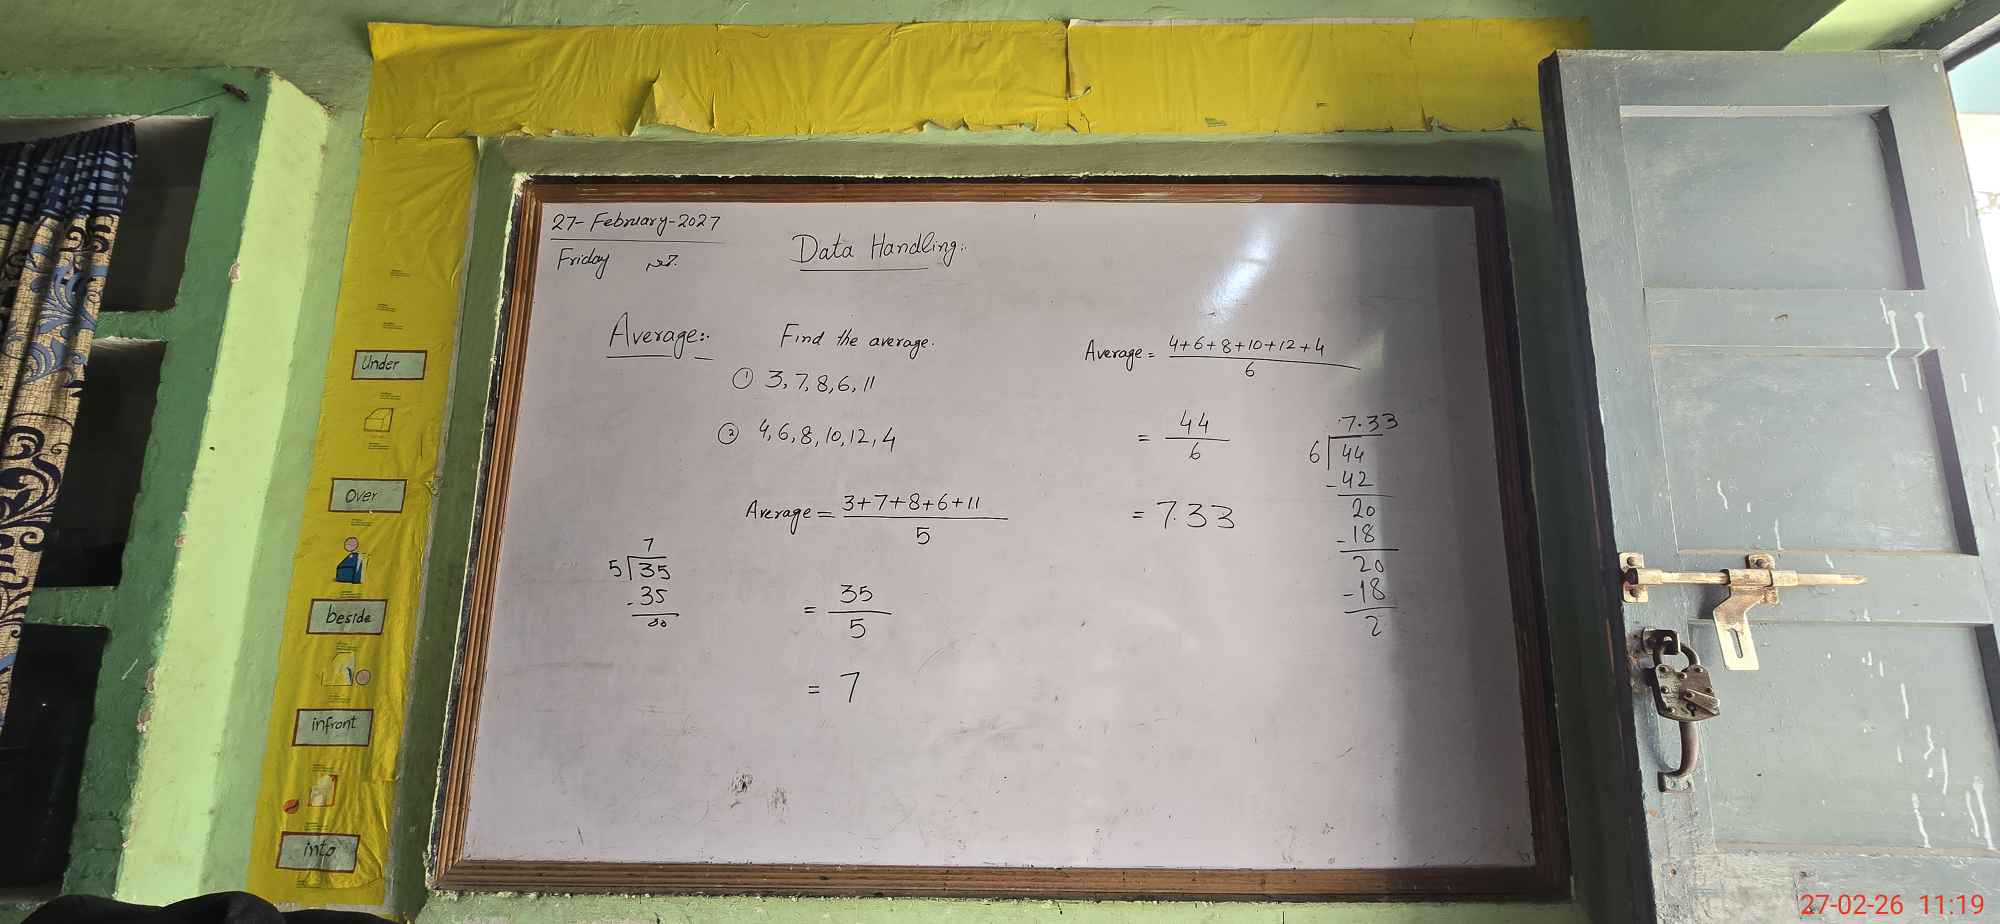 27-February-2027
Friday
Data Handling:.
Average:.
Find the average.
① 3, 7, 8, 6, 11
② 4, 6, 8, 10, 12, 4
Average = 3+7+8+6+11
5
7
5 35
- 35
00
= 35
5
= 7
Average = 4+6+8+10+12+4
6
= 44
6
= 7.33
7.33
6 44
- 42
20
- 18
20
- 18
2
Under
Over
beside
infront
into
27-02-26 11:19